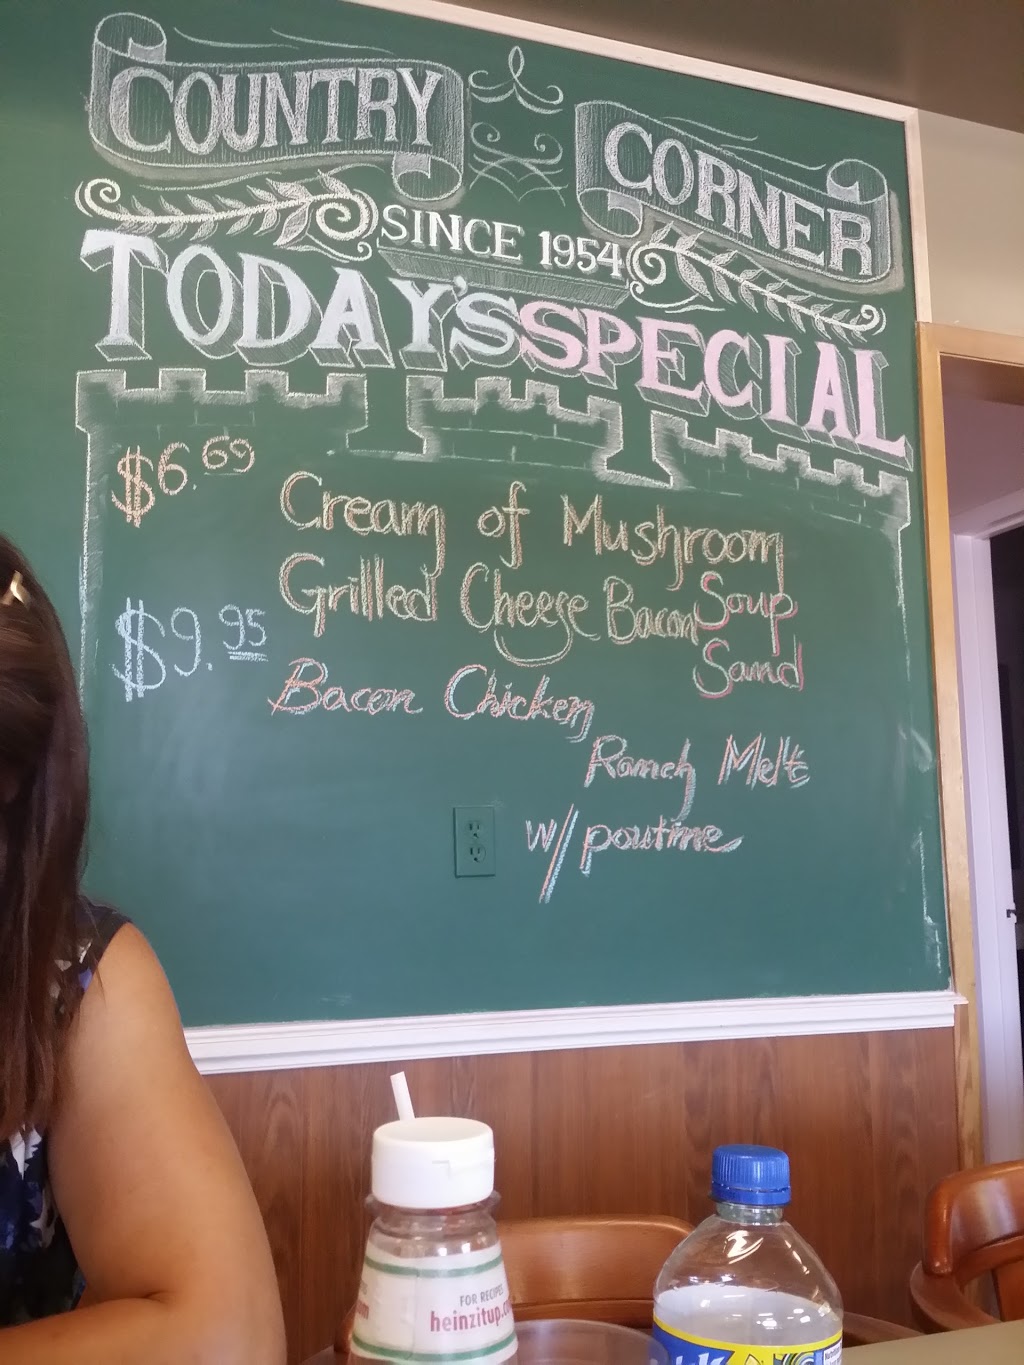 COUNTRY CORNER
SINCE 1954
TODAY'S SPECIAL
$6.69
Cream of Mushroom
Soup
Grilled Cheese Bacon
Sand
$9.95
Bacon Chicken
Ranch Melt
w/ poutine
FOR RECIPES
heinzitup.co